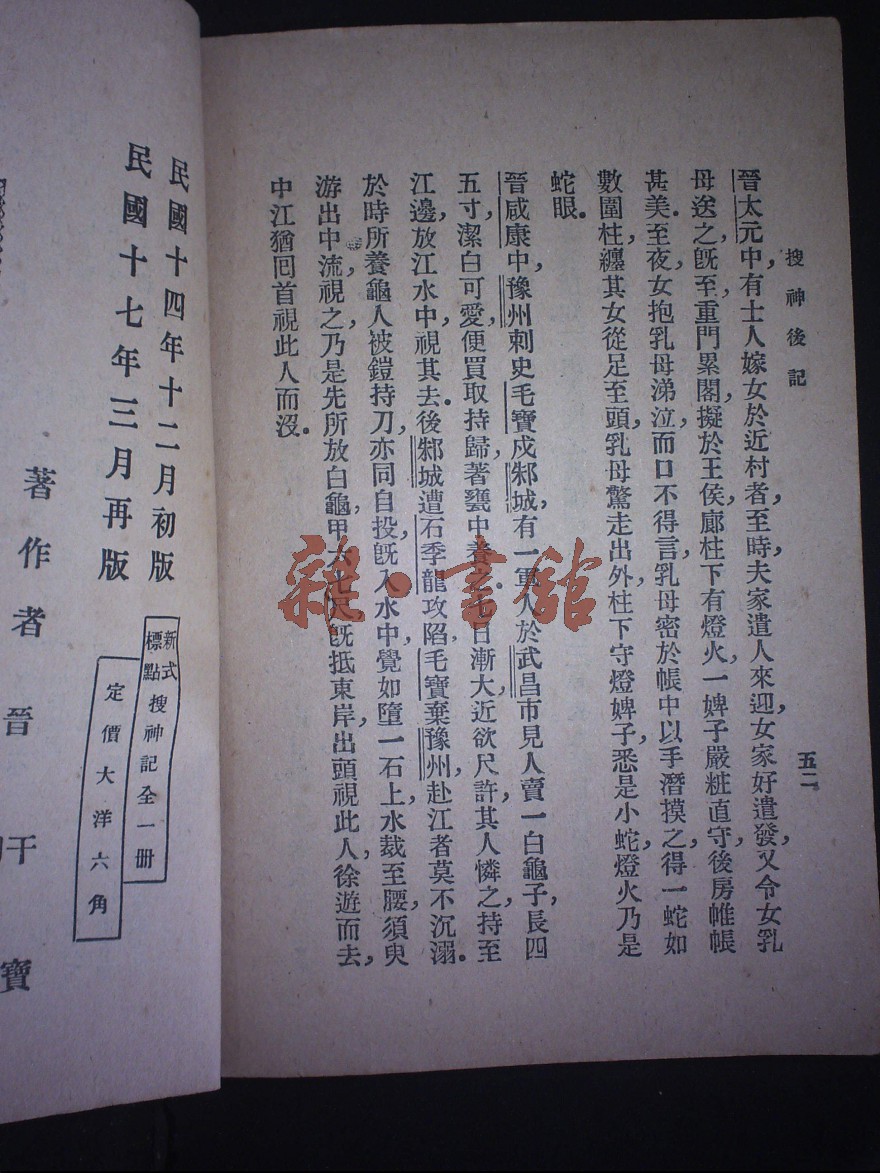 搜神後記
五二
晉太元中，有士人嫁女於近村者，至時，夫家遣人來迎，女家好遣發，又令女乳
母送之，既至，重門累閣，擬於王侯，廊柱下有燈火，一婢子嚴粧直守，後房帷帳
甚美。至夜，女抱乳母涕泣，而口不得言，乳母密於帳中以手潛摸之，得一蛇如
數圍柱，纏其女從足至頭，乳母驚走出外，柱下守燈婢子，悉是小蛇，燈火乃是
蛇眼。
晉咸康中，豫州刺史毛寶戍邾城，有一軍人於武昌市見人賣一白龜子，長四
五寸，潔白可愛，便買取持歸，著甕中養之。七日漸大，近欲尺許，其人憐之，持至
江邊，放江水中，視其去。後邾城遭石季龍攻陷，毛寶棄豫州，赴江者莫不沉溺。
於時所養龜人，被鎧持刀，亦同自投，既入水中，覺如墮一石上，水裁至腰，須臾
游出，中流視之，乃是先所放白龜，甲六七尺，既抵東岸，出頭視此人，徐遊而去，
中江，猶回首視此人而沒。
民國十四年十二月初版
民國十七年三月再版
新式標點 搜神記全一册
定價大洋六角
著作者 晉 干 寶
雜·書館